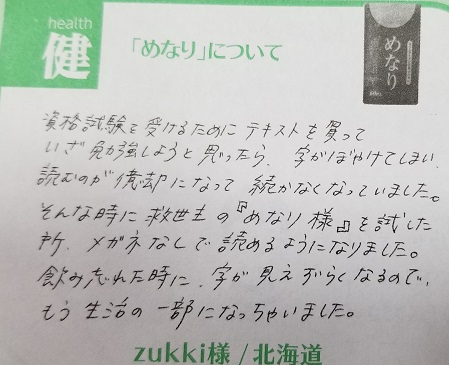 health
健
「めなり」について
めなり
資格試験を受けるために テキストを買って
いざ勉強しようと思ったら、字がぼやけてしまい、
読むのが億却になって 続かなくなっていました。
そんな時に救世主の『めなり様』を試した
所、メガネなしで読めるようになりました。
飲み忘れた時に、字が見えずらくなるので、
もう生活の一部になっちゃいました。
zukki様 / 北海道